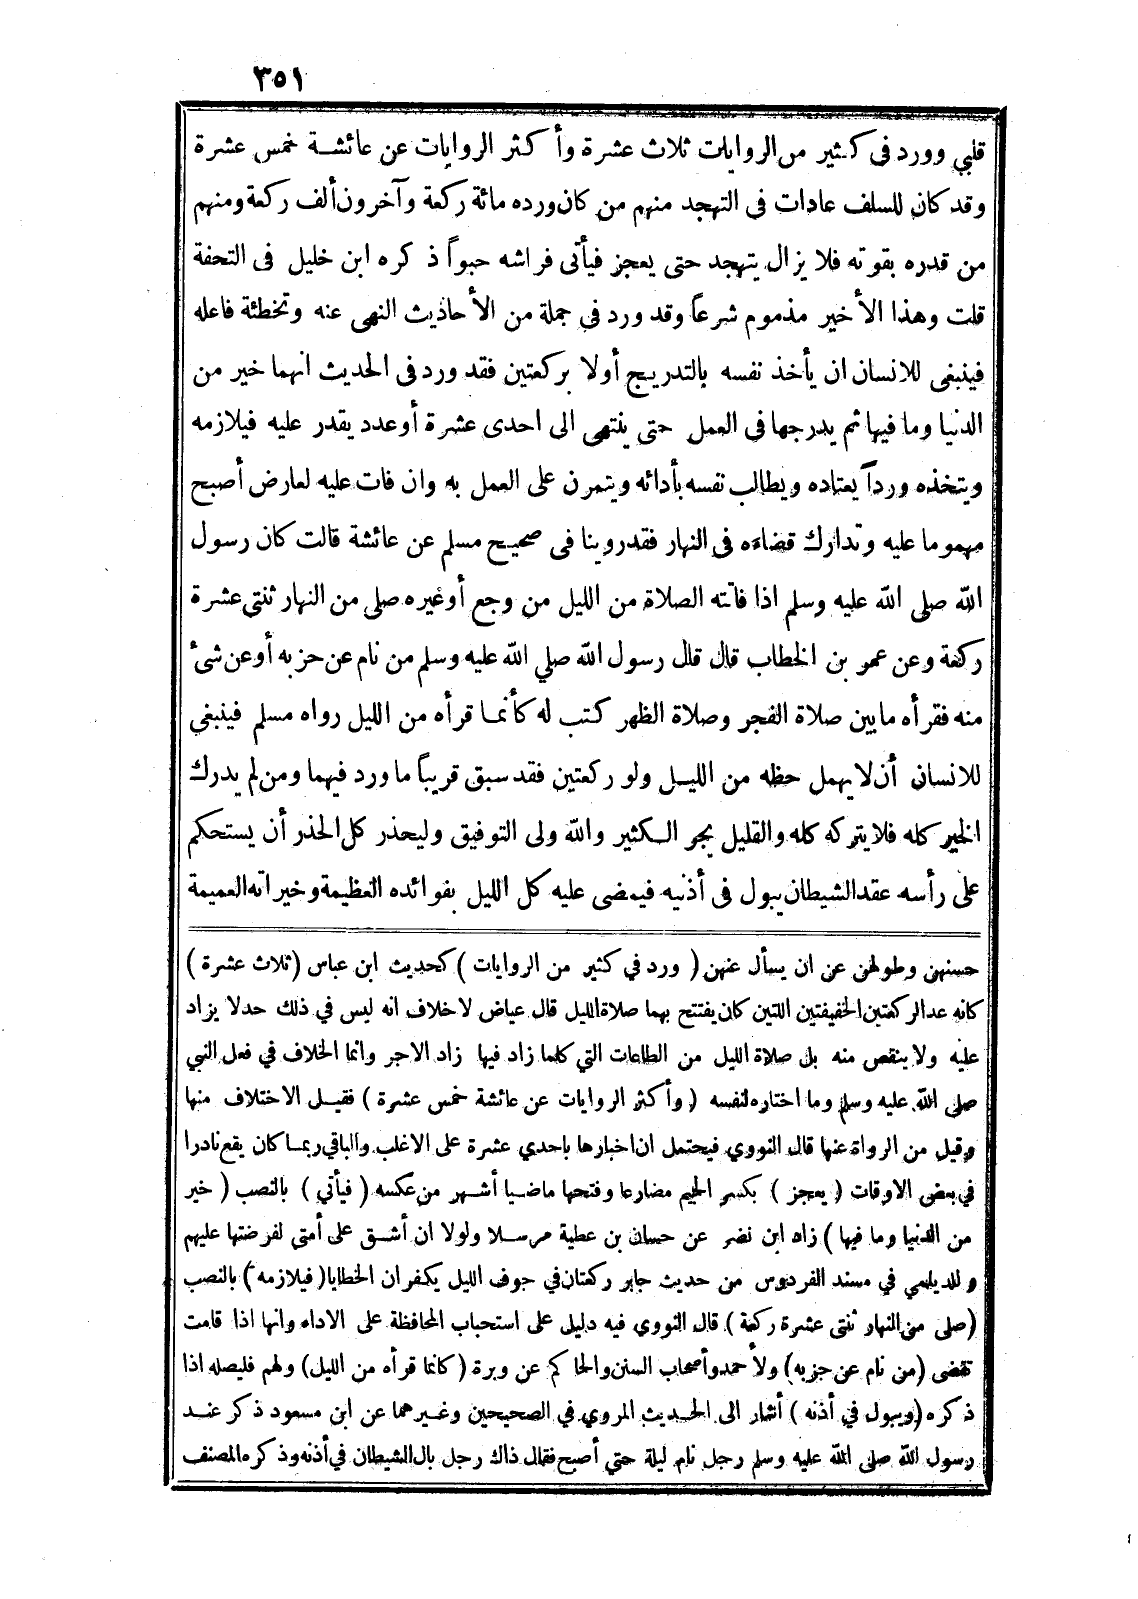 ٣٥١
قلبي وورد فى كثير من الروايات ثلاث عشرة وأكثر الروايات عن عائشة خمس عشرة
وقد كان للسلف عادات فى التهجد منهم من كان ورده مائة ركعة وآخرون ألف ركعة ومنهم
من قدره بقوته فلا يزال يتهجد حتى يعجز فيأتى فراشه حبواً ذكره ابن خليل فى التحفة
قلت وهذا الأخير مذموم شرعاً وقد ورد في جملة من الأحاذيث النهى عنه وتخطئة فاعله
فينبغى للانسان ان يأخذ نفسه بالتدريج أولا بركعتين فقد ورد فى الحديث انهما خير من
الدنيا وما فيها ثم يدرجها فى العمل حتى ينتهى الى احدى عشرة أو عدد يقدر عليه فيلازمه
ويتخذه ورداً يعتاده ويطالب نفسه بأدائه ويتمرن على العمل به وان فات عليه لعارض أصبح
مهموما عليه وتدارك قضاءه فى النهار فقد روينا فى صحيح مسلم عن عائشة قالت كان رسول
الله صلى الله عليه وسلم اذا فاتته الصلاة من الليل من وجع أو غيره صلى من النهار ثنتى عشرة
ركعة وعن عمر بن الخطاب قال قال رسول الله صلي الله عليه وسلم من نام عن حزبه أو عن شئ
منه فقرأه ما بين صلاة الفجر وصلاة الظهر كتب له كأنما قرأه من الليل رواه مسلم فينبغي
للانسان أن لا يهمل حظه من الليل ولو ركعتين فقد سبق قريباً ما ورد فيهما ومن لم يدرك
الخير كله فلا يتركه كله والقليل يجر الكثير والله ولى التوفيق وليحذر كل الحذر أن يستحكم
على رأسه عقد الشيطان يبول فى أذنيه فيمضى عليه كل الليل بفوائده العظيمة وخيراته العميمة
حسنهن وطولهن عن ان يسأل عنهن ( ورد في كثير من الروايات ) كحديث ابن عباس (ثلاث عشرة )
كانه عد الركعتين الخفيفتين اللتين كان يفتتح بهما صلاة الليل قال عياض لا خلاف انه ليس في ذلك حد لا يزاد
عليه ولا ينقص منه بل صلاة الليل من الطاعات التي كلما زاد فيها زاد الاجر وانما الخلاف في فعل النبي
صلى الله عليه وسلم وما اختاره لنفسه ( وأكثر الروايات عن عائشة خمس عشرة ) فقيل الاختلاف منها
وقيل من الرواة عنها قال النووي فيحتمل ان اخبارها باحدي عشرة على الاغلب والباقي ربما كان يقع نادرا
في بعض الاوقات ( يعجز ) بكسر الجيم مضارعا وفتحها ماضيا أشهر من عكسه ( فيأتي ) بالنصب ( خير
من الدنيا وما فيها ) زاد ابن نضر عن حسان بن عطية مرسلا ولولا ان أشق على أمتى لفرضتها عليهم
وللديلمي في مسند الفردوس من حديث جابر ركعتان في جوف الليل يكفران الخطايا ( فيلازمه ) بالنصب
(صلى من النهار ثنتى عشرة ركعة ) قال النووي فيه دليل على استحباب المحافظة على الاداء وانها اذا قامت
تقضى (من نام عن حزبه) ولأحمد وأصحاب السنن والحاكم عن وبرة ( كانما قرأه من الليل) ولهم فليصله اذا
ذكره ( ويبول في أذنه ) أشار الى الحديث المروي في الصحيحين وغيرهما عن ابن مسعود ذكر عند
رسول الله صلى الله عليه وسلم رجل نام ليلة حتي أصبح فقال ذاك رجل بال الشيطان في أذنه وذكره المصنف